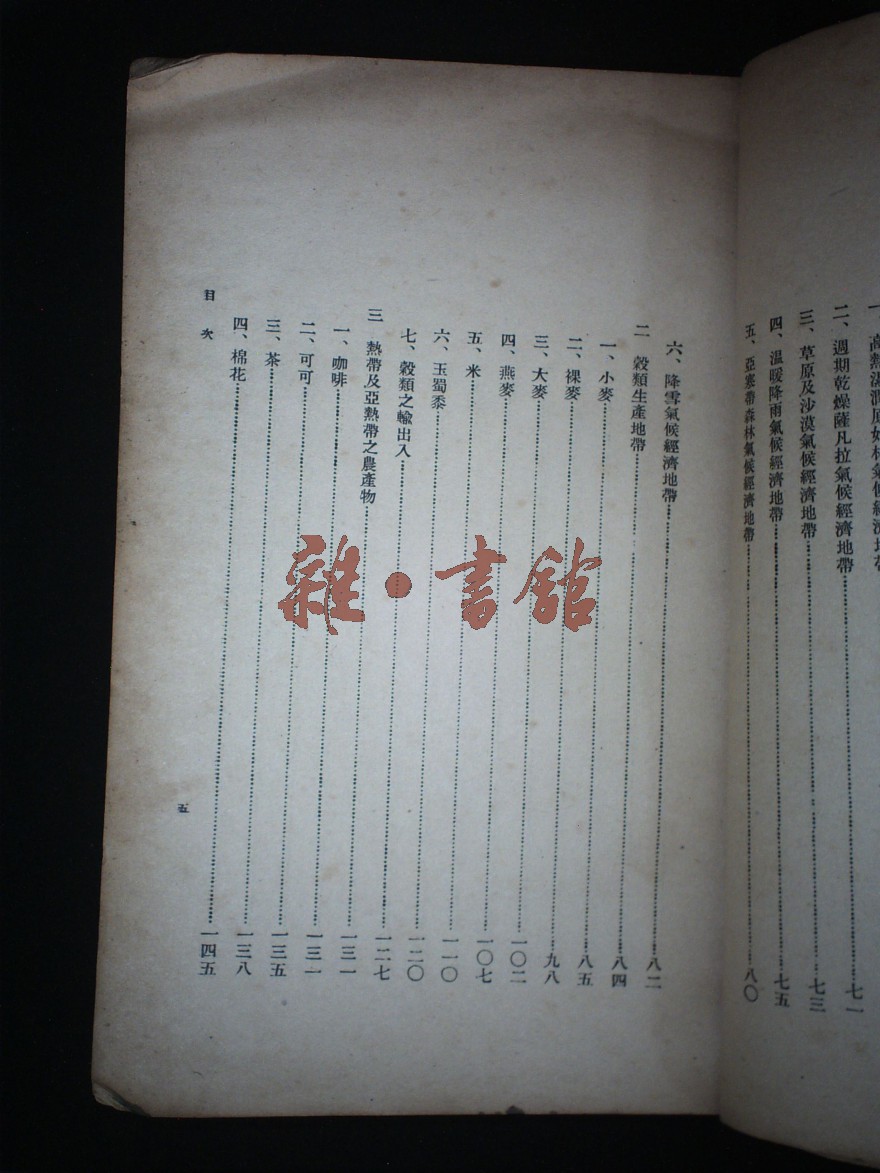 二、週期乾燥薩凡拉氣候經濟地帶……七一
三、草原及沙漠氣候經濟地帶……七三
四、温暖降雨氣候經濟地帶……七五
五、亞寒帶森林氣候經濟地帶……八〇
六、降雪氣候經濟地帶……八二
二 穀類生產地帶……八四
一、小麥……八五
二、裸麥……九八
三、大麥……一〇二
四、燕麥……一〇七
五、米……一一〇
六、玉蜀黍……一二〇
七、穀類之輸出入……一二七
三 熱帶及亞熱帶之農產物……一三一
一、咖啡……一三一
二、可可……一三五
三、茶……一三八
四、棉花……一四五
目次
五
雜•書館